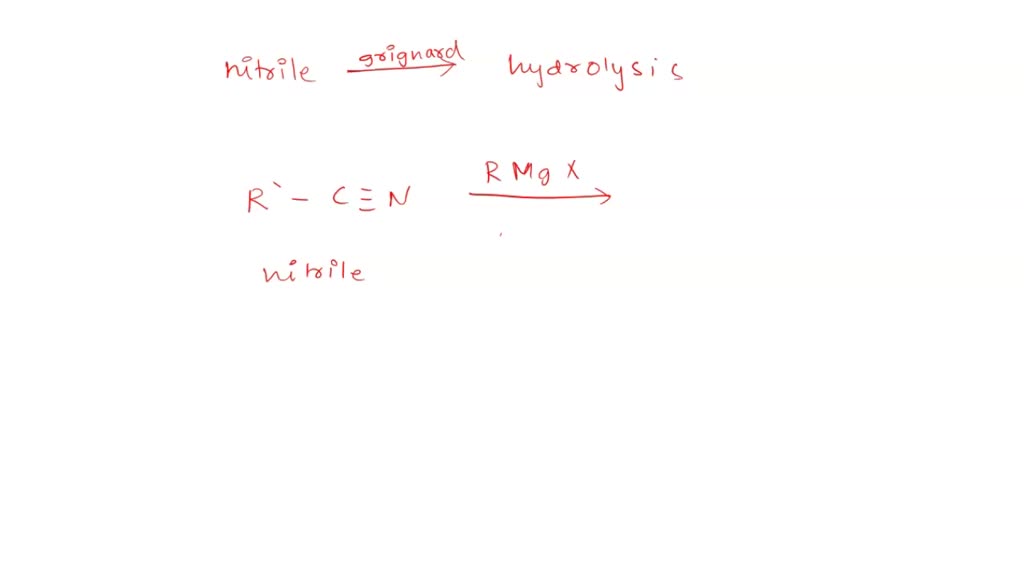 nitrile grignard → hydrolysis
R` - C ≡ N R Mg X →
nitrile